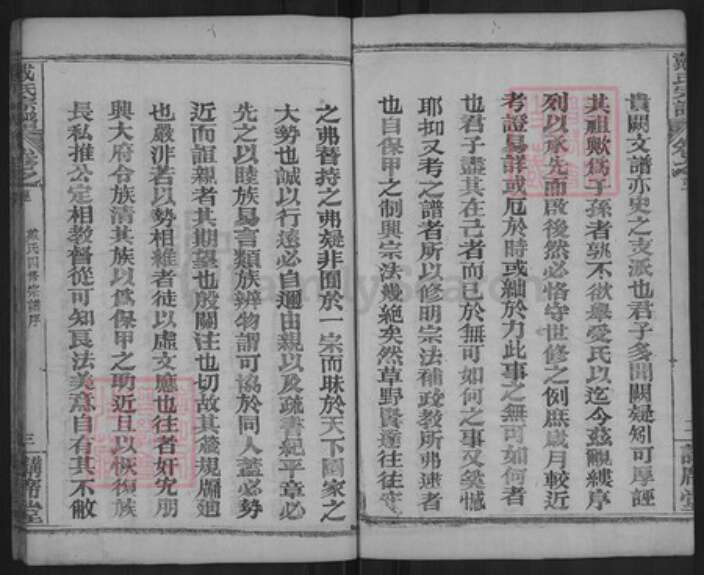 貴闕文譜亦史之支派也君子多聞闕疑矧可厚誣
其祖歟為子孫者孰不欲舉受氏以迄今茲覼縷序
列以承先而啟後然必恪守世修之例庶歲月較近
考證易詳或厄於時或絀於力此事之無可如何者
也君子盡其在己者而已於無可如何之事又奚憾
耶抑又考之譜者所以修明宗法補政教所弗逮者
也自保甲之制興宗法幾絕矣然草野賢達往往
戴氏宗譜
之弗替持之弗疑非囿於一宗而昧於天下國家之
大勢也誠以行遠必自邇由親以及疏書紀平章必
先之以睦族易言類族辨物謂可協於同人蓋必勢
近而誼親者其期望也殷關注也切故其箴規牖迪
也嚴非若以勢相維者徒以虛文應也往者奸宄朋
興大府令族清其族以為保甲之助近且以恢復族
長私推公定相教督從可知良法美意自有其不敝
戴氏宗譜
卷之
戴氏四修宗譜序
三